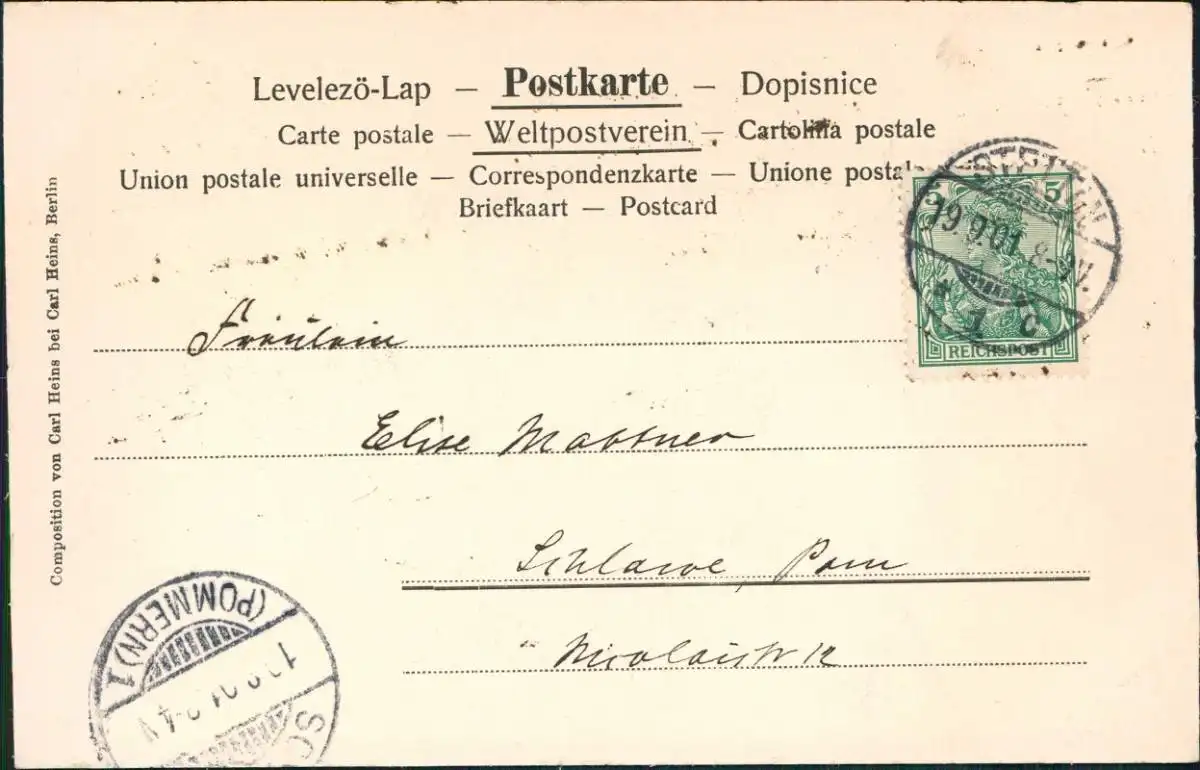 Levelezö-Lap — Postkarte — Dopisnice
Carte postale — Weltpostverein — Cartolina postale
Union postale universelle — Correspondenzkarte — Unione postal
Briefkaart — Postcard
5
REICHSPOST
STETTIN
19.9.01 8-9V.
* 1 c
Fräulein
Elise Mattner
Schlawe, Pom
Nicolaistr 12
Composition von Carl Heins bei Carl Heins, Berlin
(POMMERN) 1
SC